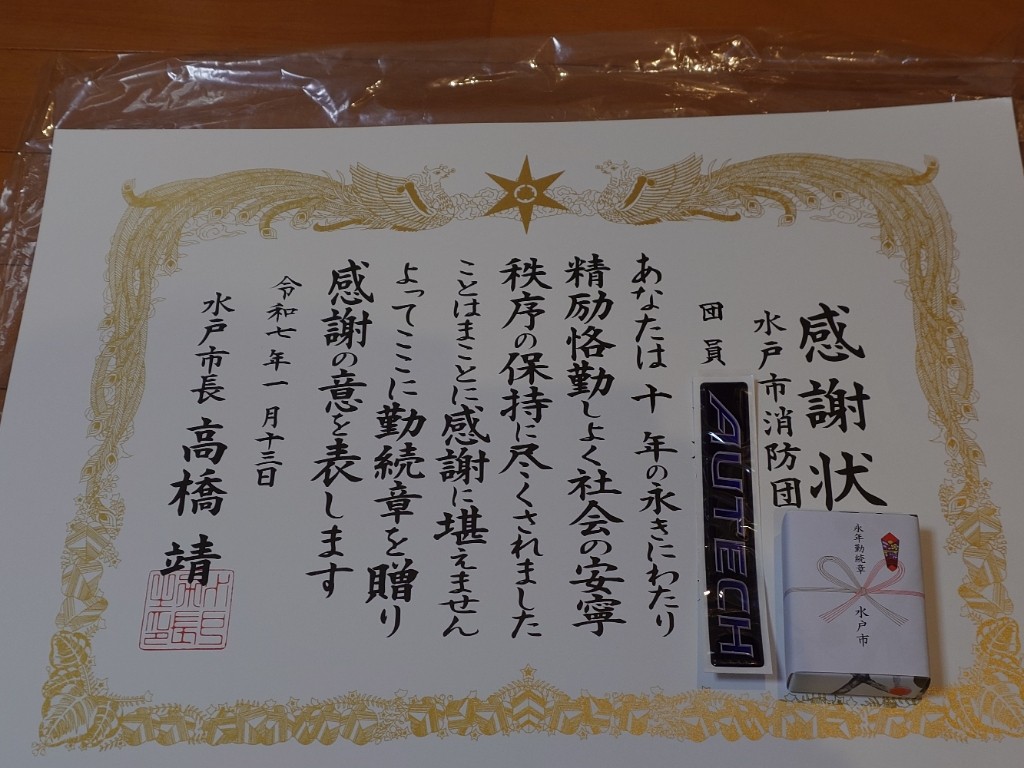 感謝状
水戸市消防団
団員
あなたは十年の永きにわたり
精励恪勤しよく社会の安寧
秩序の保持に尽くされました
ことはまことに感謝に堪えません
よってここに勤続章を贈り
感謝の意を表します
令和七年一月十三日
水戸市長 高橋 靖
AUTECH
永年勤続章
水戸市